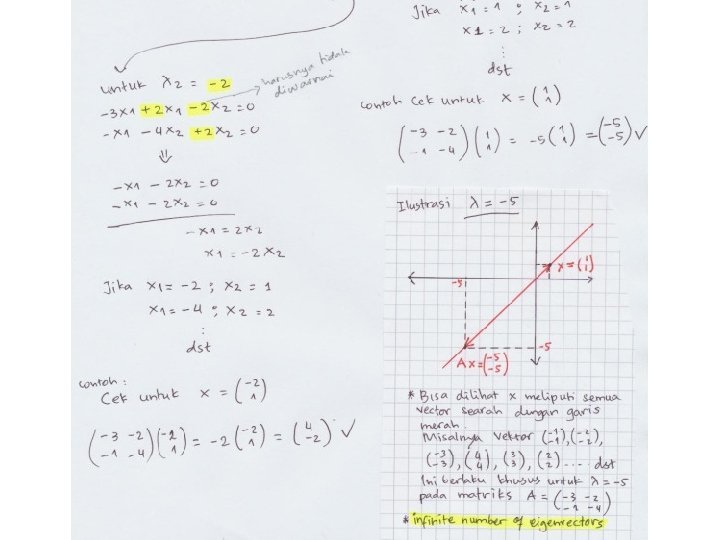 untuk λ2 = -2
harusnya tidak
diwarnai
-3x1 +2x1 -2x2 = 0
-x1 - 4x2 +2x2 = 0
⇓
-x1 - 2x2 = 0
-x1 - 2x2 = 0
-x1 = 2x2
x1 = -2x2
Jika x1 = -2 ; x2 = 1
x1 = -4 ; x2 = 2
⋮
dst
Contoh :
Cek untuk x = (-2 1)
(-3 -2 -1 -4) (-2 1) = -2 (-2 1) = (4 -2) ✓
Jika x1 = 1 ; x2 = 1
x1 = 2 ; x2 = 2
⋮
dst
Contoh Cek untuk x = (1 1)
(-3 -2 -1 -4) (1 1) = -5 (1 1) = (-5 -5) ✓
Ilustrasi λ = -5
x = (1 1)
-5
-5
Ax = (-5 -5)
* Bisa dilihat x meliputi semua
vector searah dengan garis
merah.
Misalnya vektor (-1 -1), (-2 -2),
(-3 -3), (4 4), (3 3), (2 2) .... dst
Ini berlaku khusus untuk λ = -5
pada matriks A = (-3 -2 -1 -4)
* infinite number of eigenvectors